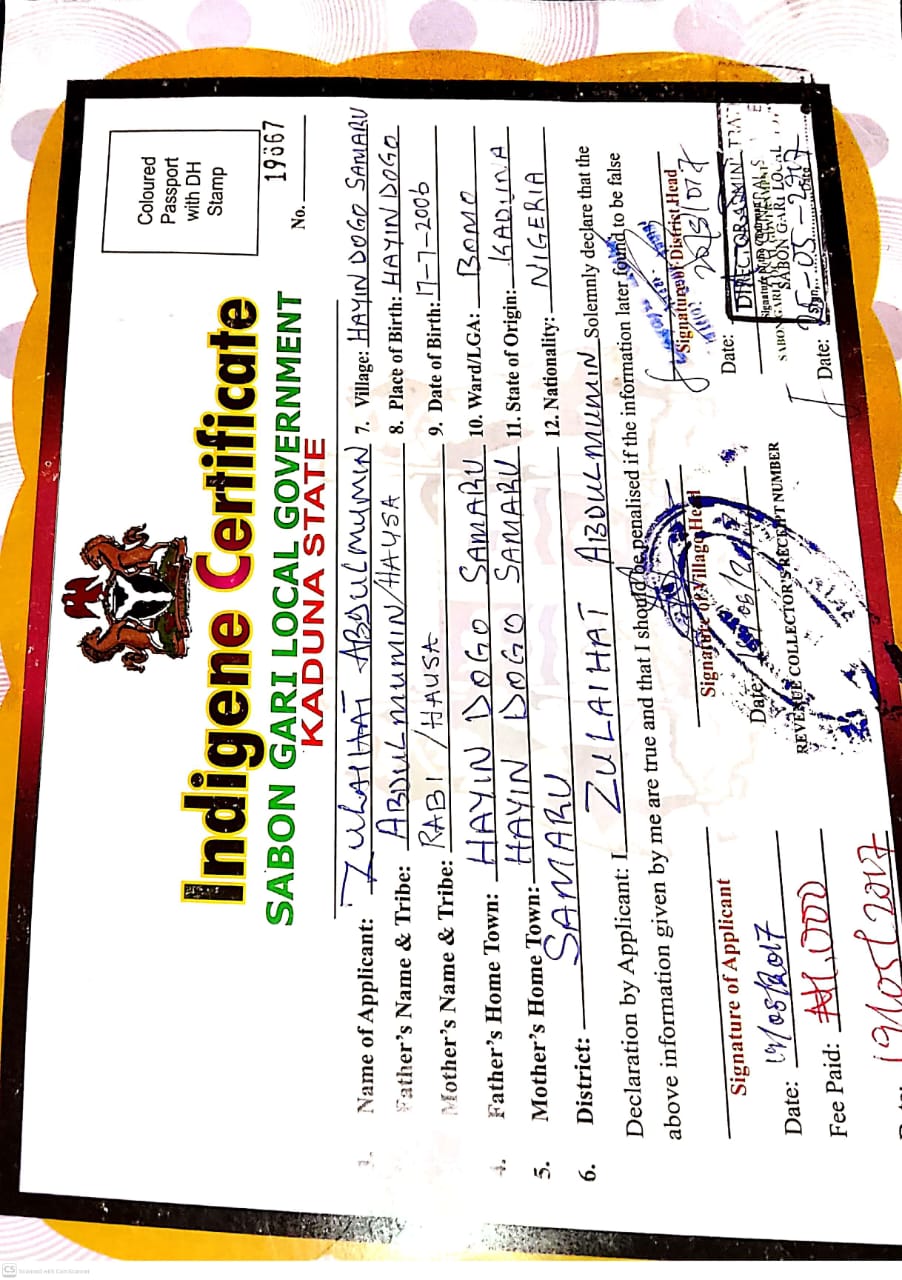 Coloured
Passport
with DH
Stamp
Indigene Certificate
SABON GARI LOCAL GOVERNMENT
KADUNA STATE
No. 19667
1. Name of Applicant: ZULAIHAT ABDULMUMIN
Father's Name & Tribe: ABDULMUMIN/HAUSA
Mother's Name & Tribe: RABI/HAUSA
4. Father's Home Town: HAYIN DOGO SAMARU
5. Mother's Home Town: HAYIN DOGO SAMARU
6. District: SAMARU
7. Village: HAYIN DOGO SAMARU
8. Place of Birth: HAYIN DOGO
9. Date of Birth: 17-7-2006
10. Ward/LGA: BOMO
11. State of Origin: KADUNA
12. Nationality: NIGERIA
Declaration by Applicant: I ZULAIHAT ABDULMUMIN Solemnly declare that the
above information given by me are true and that I should be penalised if the information later found to be false
Signature of Applicant
Date:
Fee Paid: ₦1,000
Signature of Village Head
Date:
REVENUE COLLECTOR'S RECEIPT NUMBER
Signature of District Head
Date:
SABON GARI LOCAL
Date:
CS Scanned with CamScanner